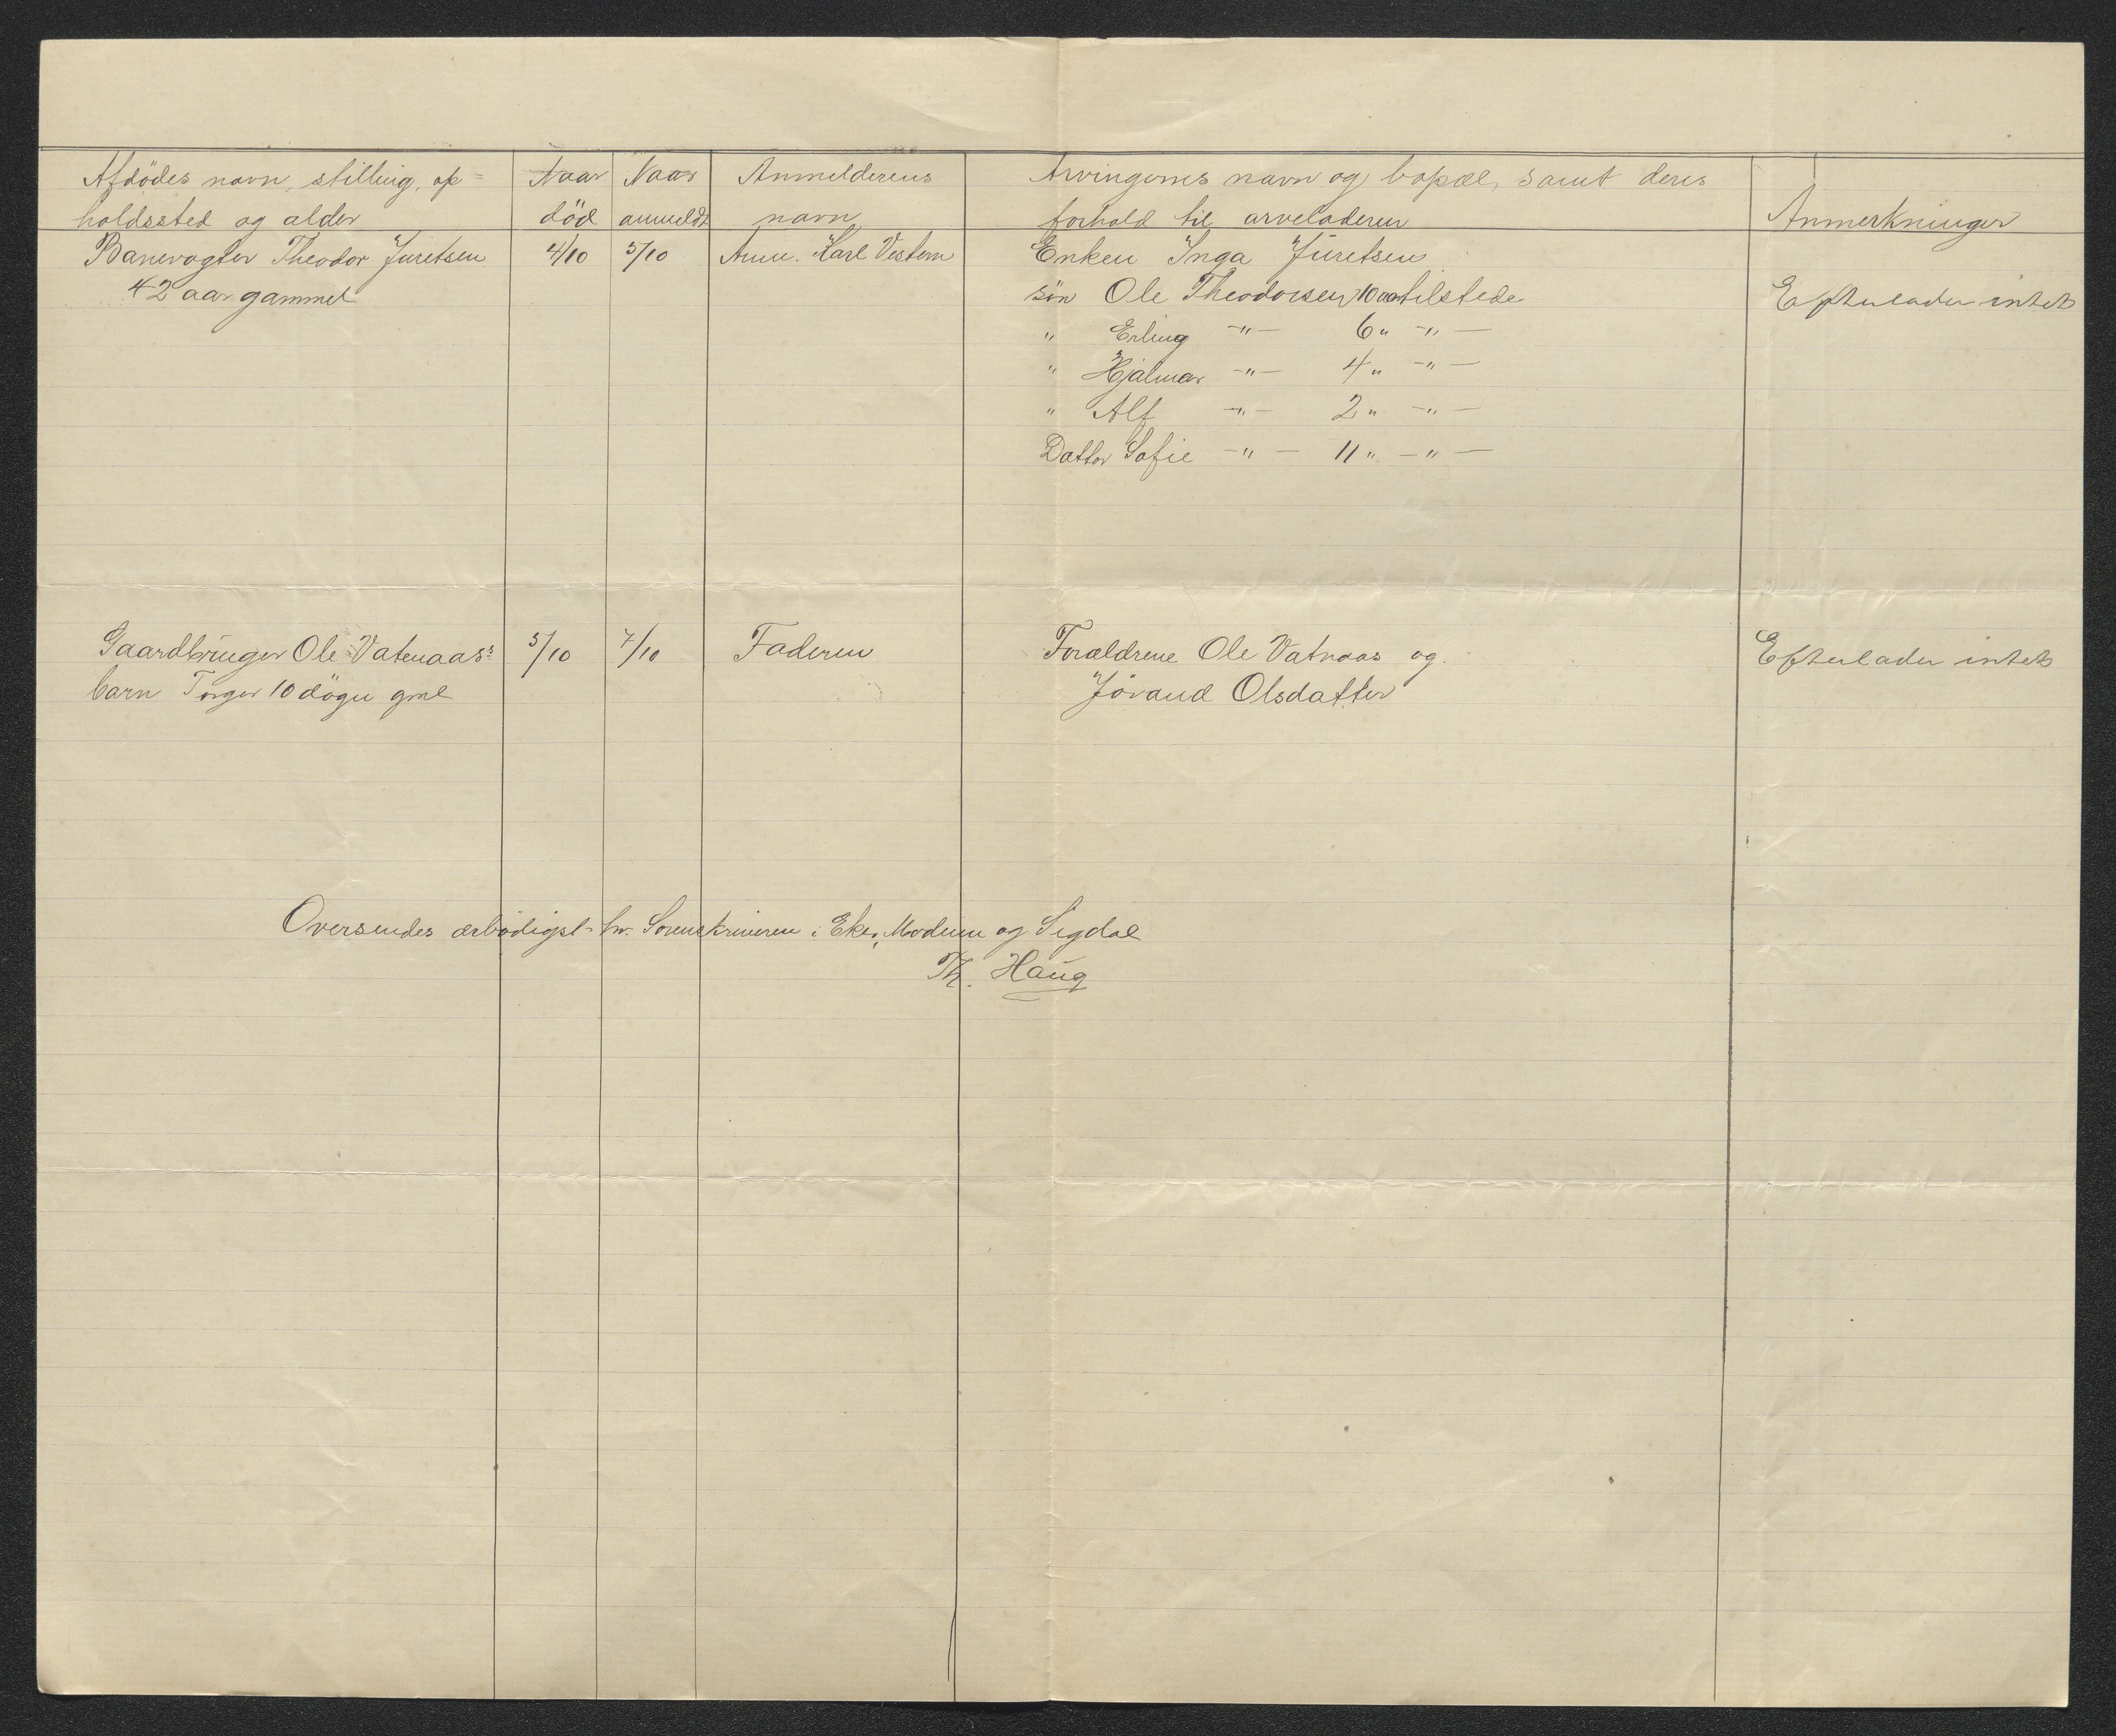 Afdödes navn, stilling, op=
holdssted og alder
Naar
död
Naar
anmeldt
Anmelderens
navn
Arvingernes navn og bopæl, samt deres
forhold til arveladeren
Anmerkninger
Banevogter Theodor Juretsen
42 aar gammel
4/10
5/10
Karl Vestern
Enken Inga Juretsen
sön Ole Theodorsen 10 aar tilstede
" Erling -"- 6 " -"-
" Hjalmar -"- 4 " -"-
" Alf -"- 2 " -"-
Datter Sofie -"- 11 " -"-
Efterlader intet
Gaardbruger Ole Vatenaas's
barn Torger 10 dögn gml
5/10
7/10
Faderen
Forældrene Ole Vatnaas og
Jörand Olsdatter
Efterlader intet
Oversendes ærbödigst hr. Sorenskriveren i Eker, Modum og Sigdal
Th. Haug